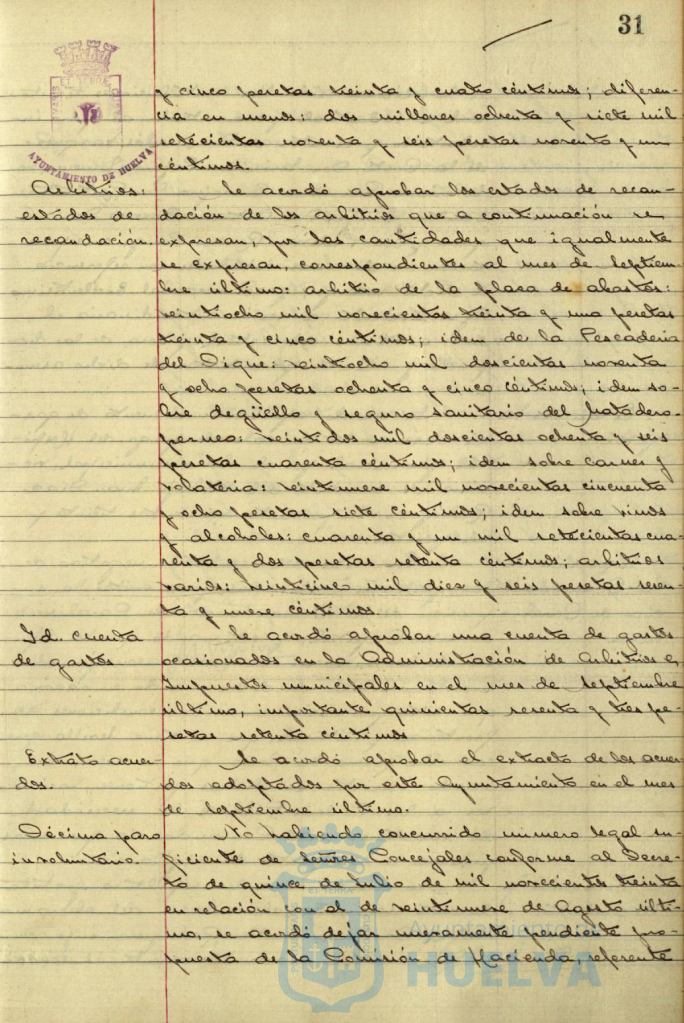 31
AYUNTAMIENTO DE HUELVA
y cinco pesetas treinta y cuatro céntimos; diferen-
cia en menos: dos millones ochenta y siete mil
setecientas noventa y seis pesetas noventa y un
céntimos.
Arbitrios:
estados de
recaudación.
Se acordó aprobar los estados de recau-
dación de los arbitrios que a continuación se
expresan, por las cantidades que igualmente
se expresan, correspondientes al mes de Septiem-
bre último: arbitrio de la plaza de abastos:
veintiocho mil novecientas treinta y una pesetas
treinta y cinco céntimos; idem de la Pescaderia
del Dique: veintiocho mil doscientas noventa
y ocho pesetas ochenta y cinco céntimos; idem so-
bre degüello y seguro sanitario del Matadero-
porcuno: veintidos mil doscientas ochenta y seis
pesetas cuarenta céntimos; idem sobre carnes y
volateria: veintinueve mil novecientas cincuenta
y ocho pesetas siete céntimos; idem sobre vinos
y alcoholes: cuarenta y un mil setecientas cua-
renta y dos pesetas setenta céntimos; arbitrios
varios: veinticinco mil diez y seis pesetas sesen-
ta y nueve céntimos.
Id. cuenta
de gastos
Se acordó aprobar una cuenta de gastos
ocasionados en la Administración de Arbitrios e
Impuestos municipales en el mes de Septiembre
último, importante quinientas sesenta y tres pe-
setas setenta céntimos
Extrato acuer-
dos.
Se acordó aprobar el extracto de los acuer-
dos adoptados por este Ayuntamiento en el mes
de Septiembre último.
Décima paro
involuntario.
No habiendo concurrido número legal su-
ficiente de Señres Concejales conforme al Decre-
to de quince de Julio de mil novecientos treinta
en relación con el de veintinueve de Agosto últi-
mo, se acordó dejar nuevamente pendiente pro-
puesta de la Comisión de Hacienda, referente
HUELVA